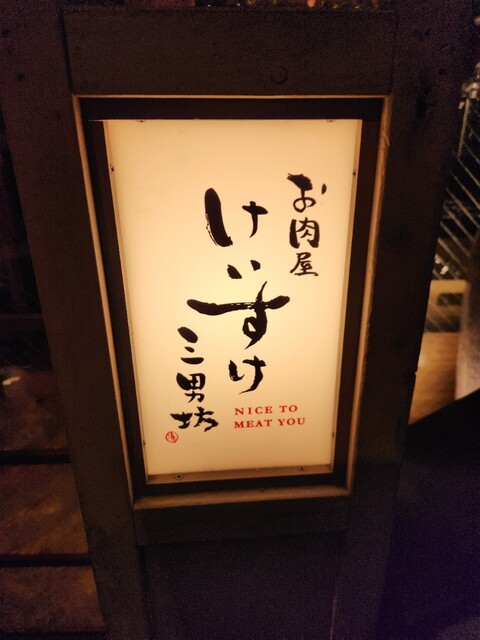 お肉屋
けいすけ
三男坊
NICE TO
MEAT YOU